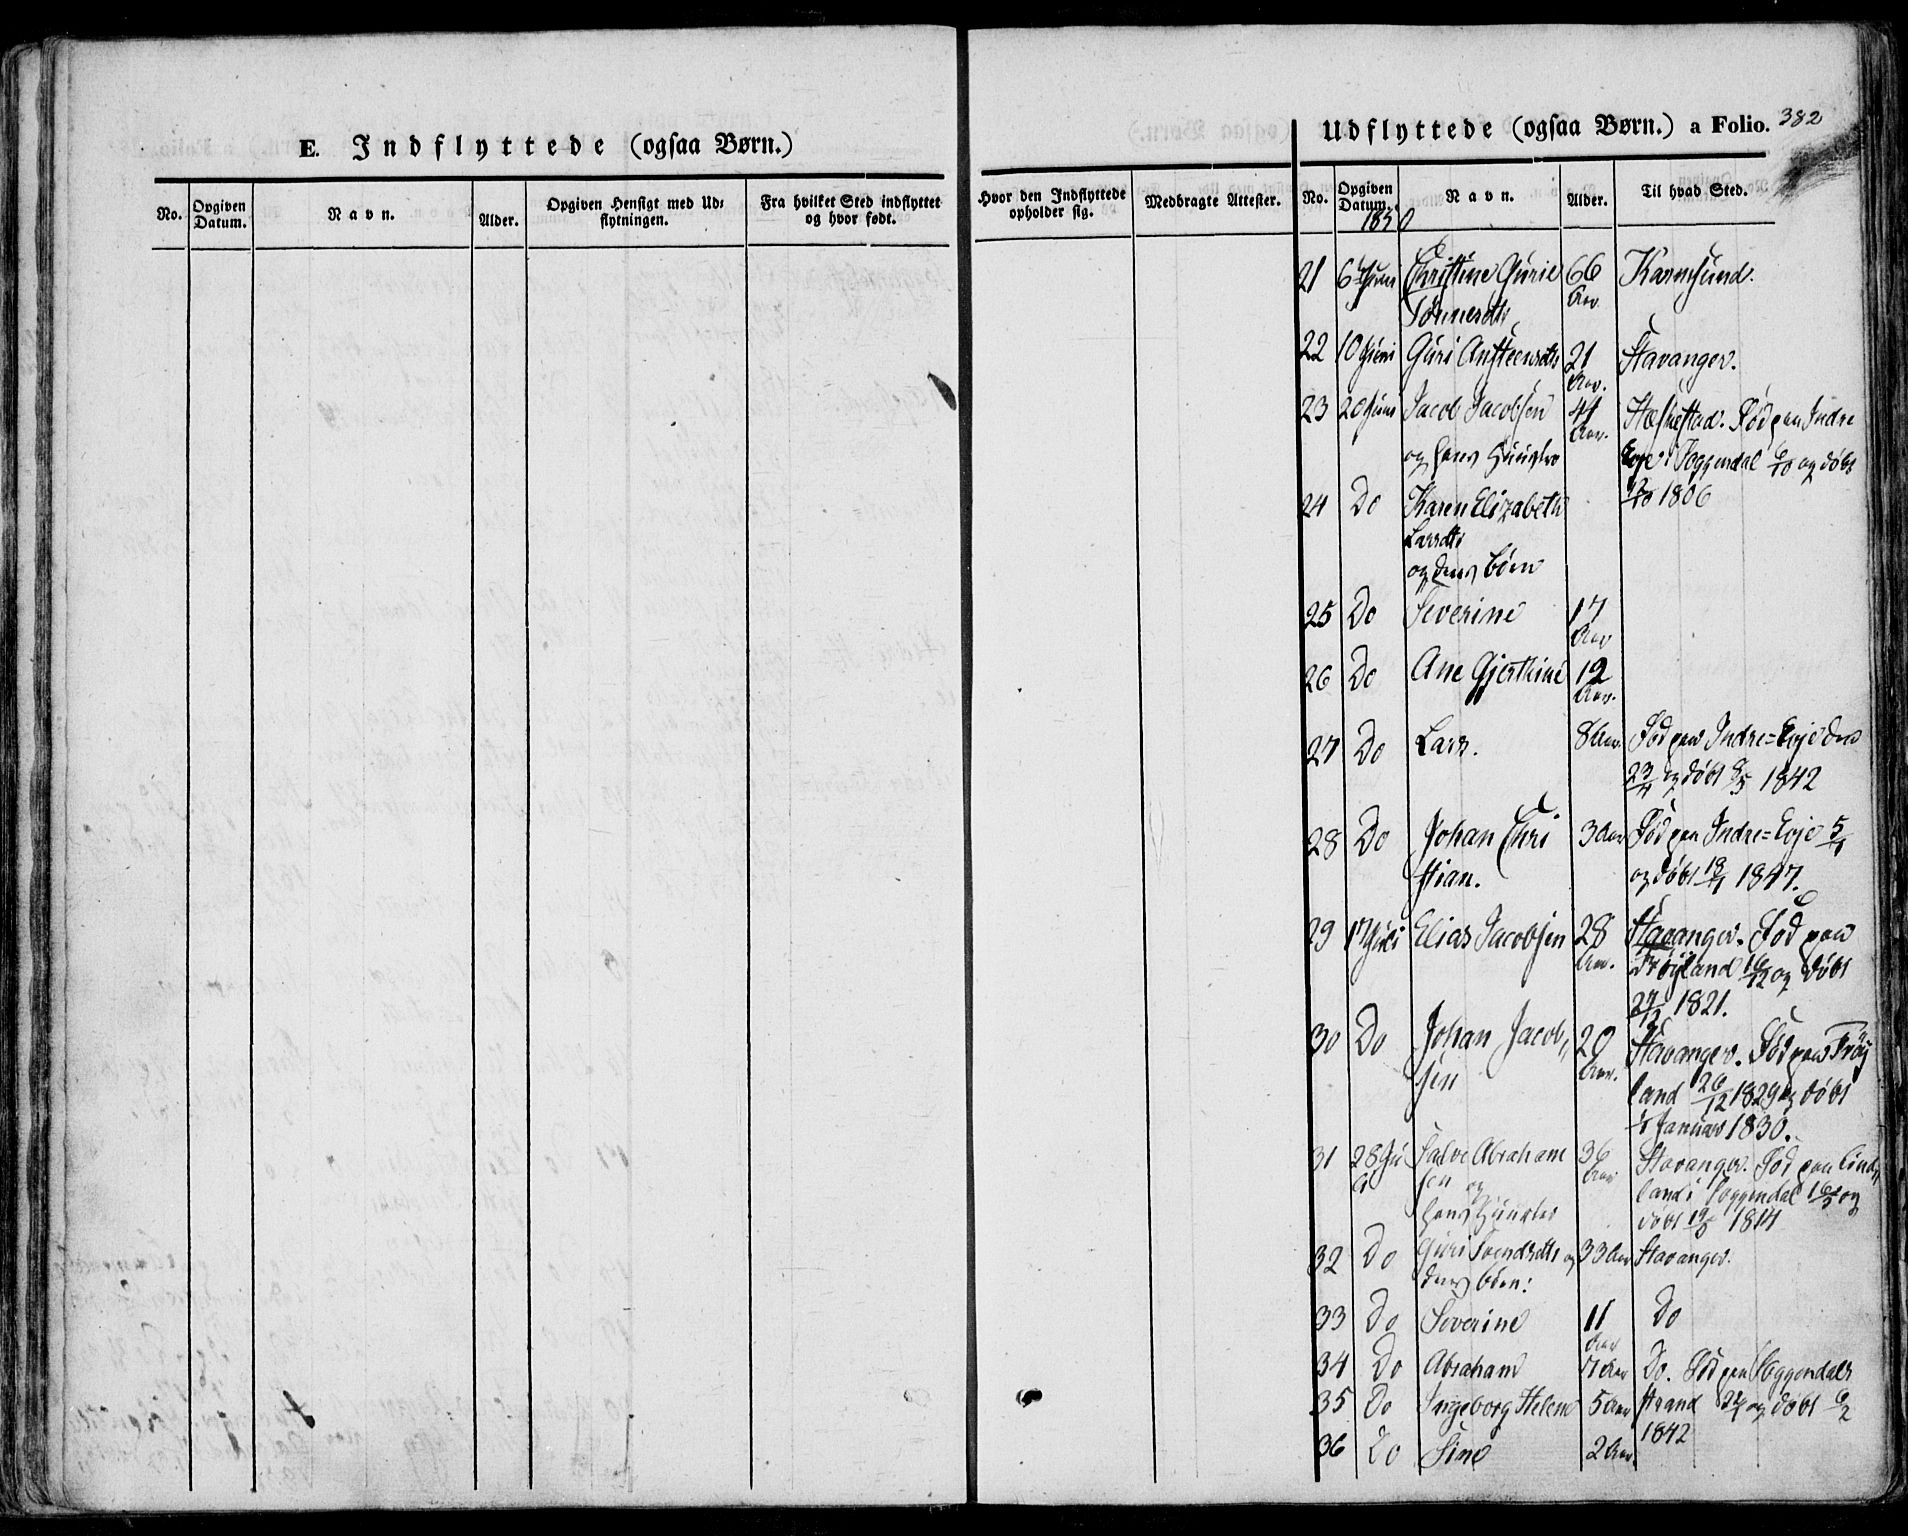 E. Indflyttede (ogsaa Børn.)
No. Opgiven Datum. Navn. Alder. Opgiven Hensigt med Udflytningen. Fra hvilket Sted indflyttet og hvor født.
Hvor den Indflyttede opholder sig. Medbragte Attester.
Udflyttede (ogsaa Børn.) a Folio. 382
No. Opgiven Datum. Navn. Alder. Til hvad Sted.
1850
21 6 Juni Christine Gurie 66 Karmsund.
Tønnesdtr Aar
22 10 Juni Guri Ansteensdtr 21 Stavanger.
Aar.
23 20 Juni Jacob Jacobsen 44 Hæskestad. Fød paa Indre
og hans Hustro Aar. Eye i Soggendal 6/10 og døbt
24 Do Karen Elizabeth 12/10 1806
Larsdtr
og deres børn
25 Do Severine 17
Aar
26 Do Ane Gjerthine 12
Aar.
27 Do Lars. 8 Aar. Fød paa Indre=Eyje den
23/4 og døbt 8/5 1842
28 Do Johan Chri 3 Aar Fød paa Indre=Eyje 5/4
stian. og døbt 18/4 1847.
29 17 Juli Elias Jacobsen 28 Stavanger. Fød paa
Aar. Frøyland 16/12 og døbt
27/12 1821.
30 Do Johan Jacob„ 20 Stavanger. Fød paa Frøy
sen Aar. land 26/12 1829 og døbt
1/1 Januar 1830.
31 28 Ju Salve Abraham 36 Stavanger. Fød paa
li sen og Aar land i Soggendal 16/5 og
hans Hustro døbt 19/5 1814
32 Do Guri Svendsdtr og 33 Aar Stavanger.
deres børn:
33 Do Severine 11 Do
Aar
34 Do Abraham 7 Aar Do. Fød paa Soggendals
35 Do Ingeborg Helene 5 Aar strand 22/1 og døbt 6/2
1842
36 Do Sine 2 Aar.